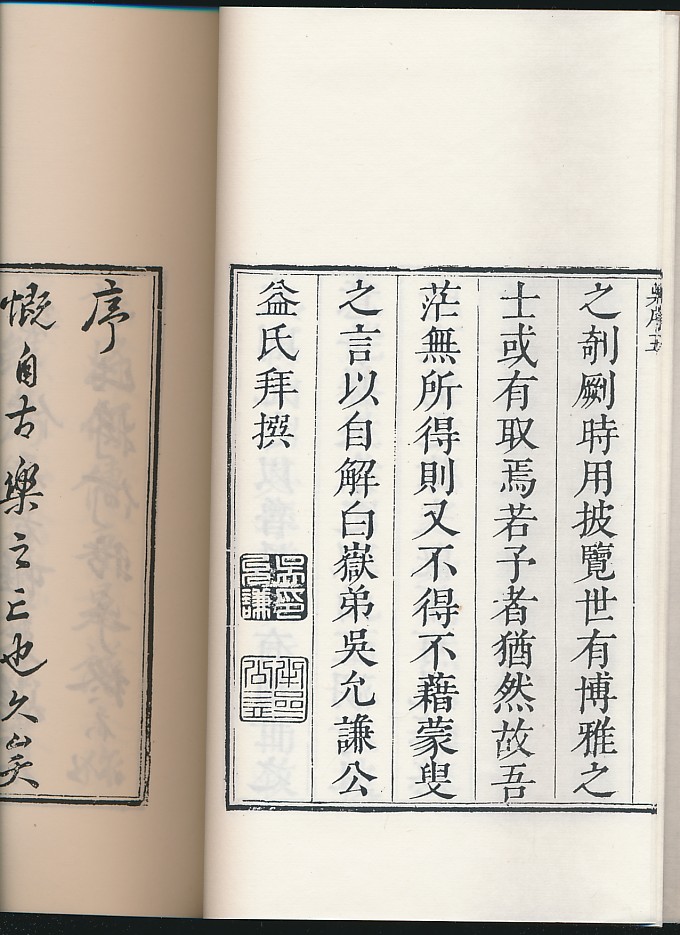 之剞劂時用披覽世有博雅之
士或有取焉若予者猶然故吾
茫無所得則又不得不藉蒙叟
之言以自解白嶽弟吳允謙公
益氏拜撰
序
慨自古樂之亡也久矣